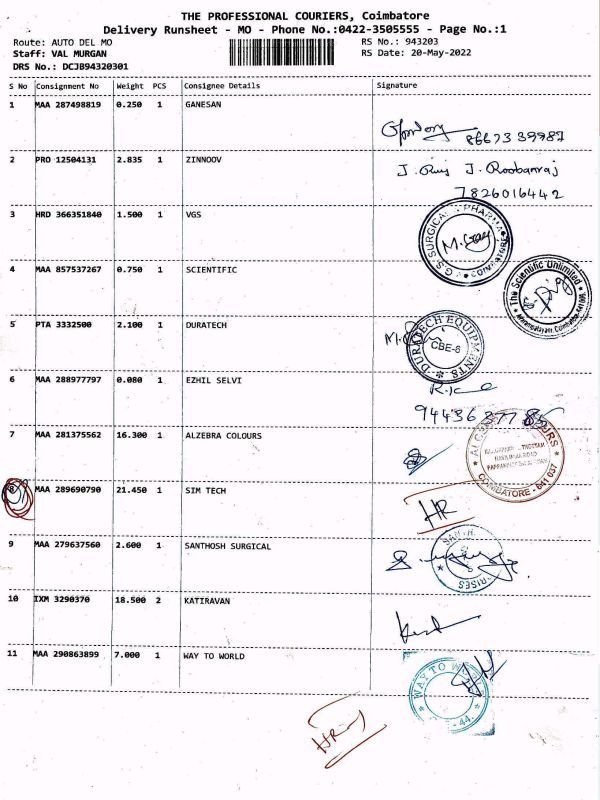 THE PROFESSIONAL COURIERS, Coimbatore
Delivery Runsheet - MO - Phone No.:0422-3505555 - Page No.:1
Route: AUTO DEL MO
RS No.: 943203
Staff: VAL MURGAN
RS Date: 20-May-2022
DRS No.: DCJB94320301
S No Consignment No Weight PCS Consignee Details Signature
1 MAA 287498819 0.250 1 GANESAN
8667339987
2 PRO 12504131 2.835 1 ZINNOOV
J. Roobanraj
7826016442
3 HRD 366351840 1.500 1 VGS
G.S SURGICAL PHARMA
4 MAA 857537267 0.750 1 SCIENTIFIC
The Scientific Unlimited
5 PTA 3332500 2.100 1 DURATECH
DURATECH EQUIPMENTS
CBE-6
6 MAA 288977797 0.080 1 EZHIL SELVI
7 MAA 281375562 16.300 1 ALZEBRA COLOURS
COIMBATORE - 641 037
8 MAA 289690790 21.450 1 SIM TECH
HR
9 MAA 279637560 2.600 1 SANTHOSH SURGICAL
10 IXM 3290370 18.500 2 KATIRAVAN
11 MAA 290863899 7.000 1 WAY TO WORLD
WAY TO
44